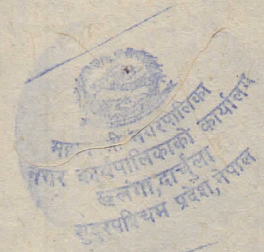 नगरपालिका
नगर कार्यपालिकाको कार्यालय
खलंगा,दार्चुला
सुदूरपश्चिम प्रदेश,नेपाल